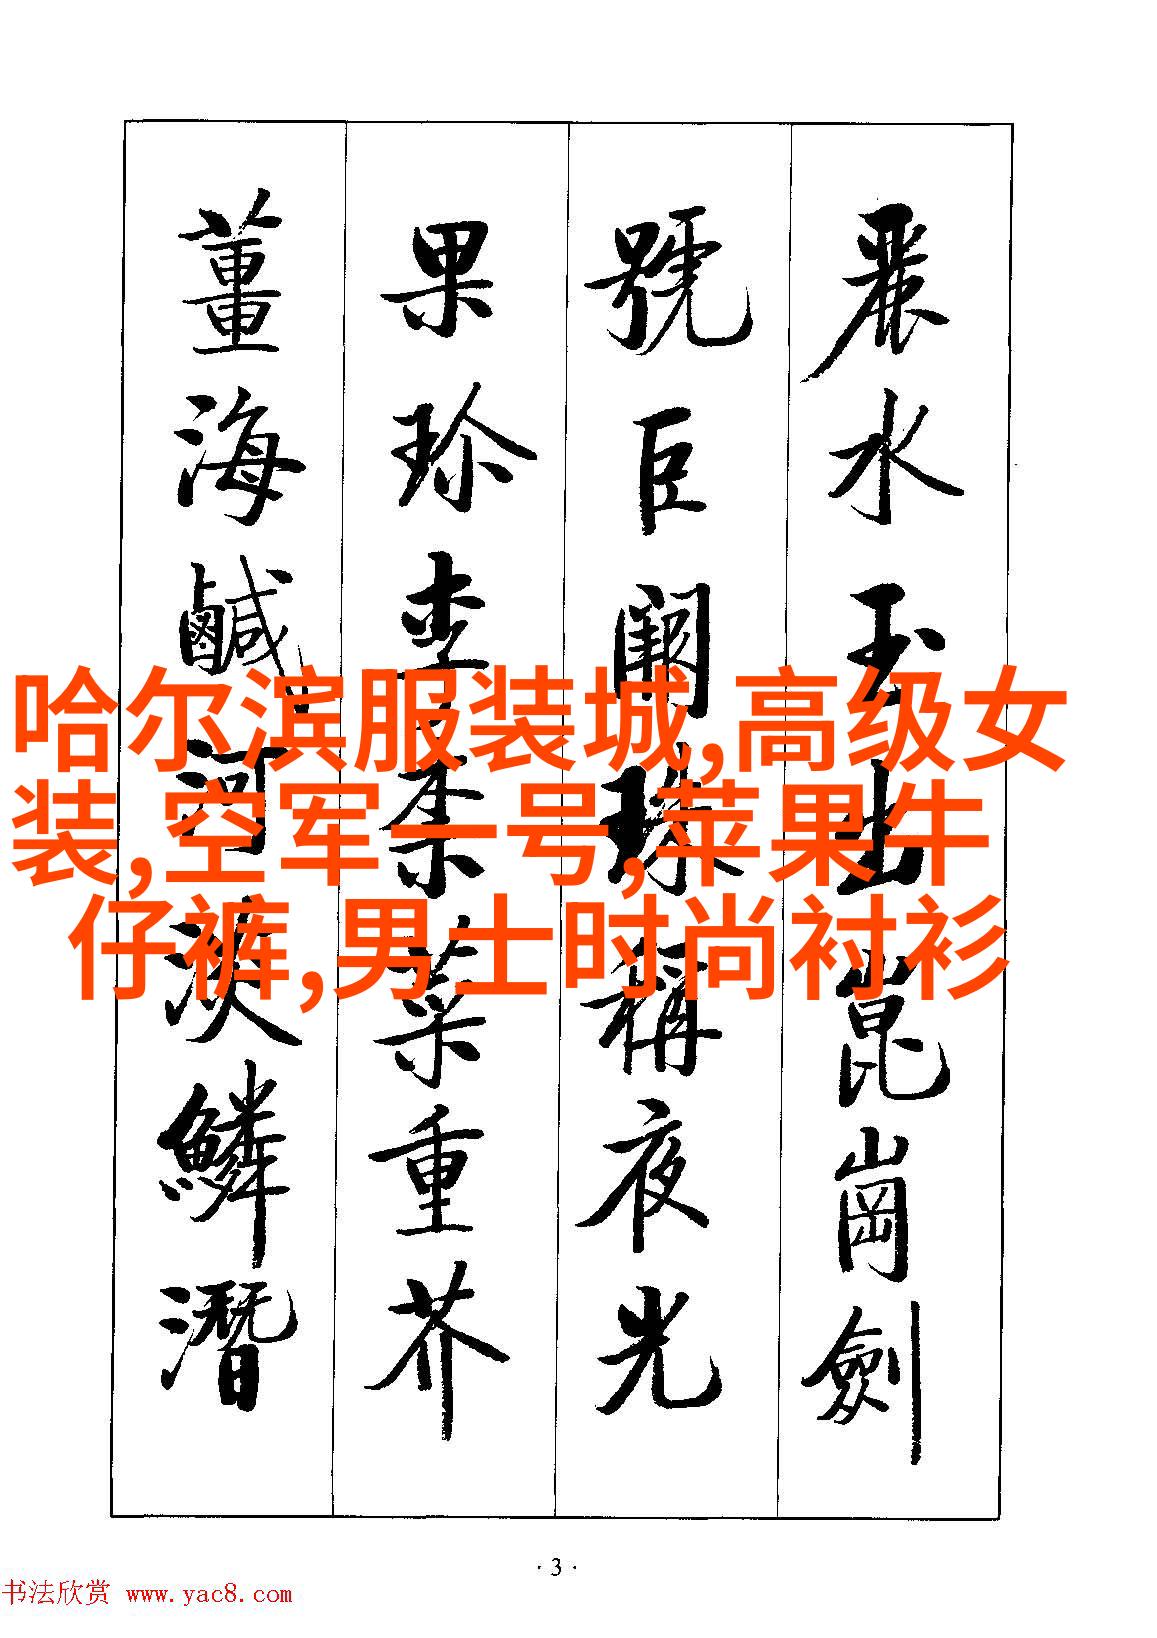 麗水玉出崑崗劍
號巨闕珠稱夜光
果珍李柰菜重芥
薑海鹹河淡鱗潛
哈尔滨服装城,高级女
装,空军一号,苹果牛
仔裤,男士时尚衬衫
·3·
书法欣赏 www.yac8.com